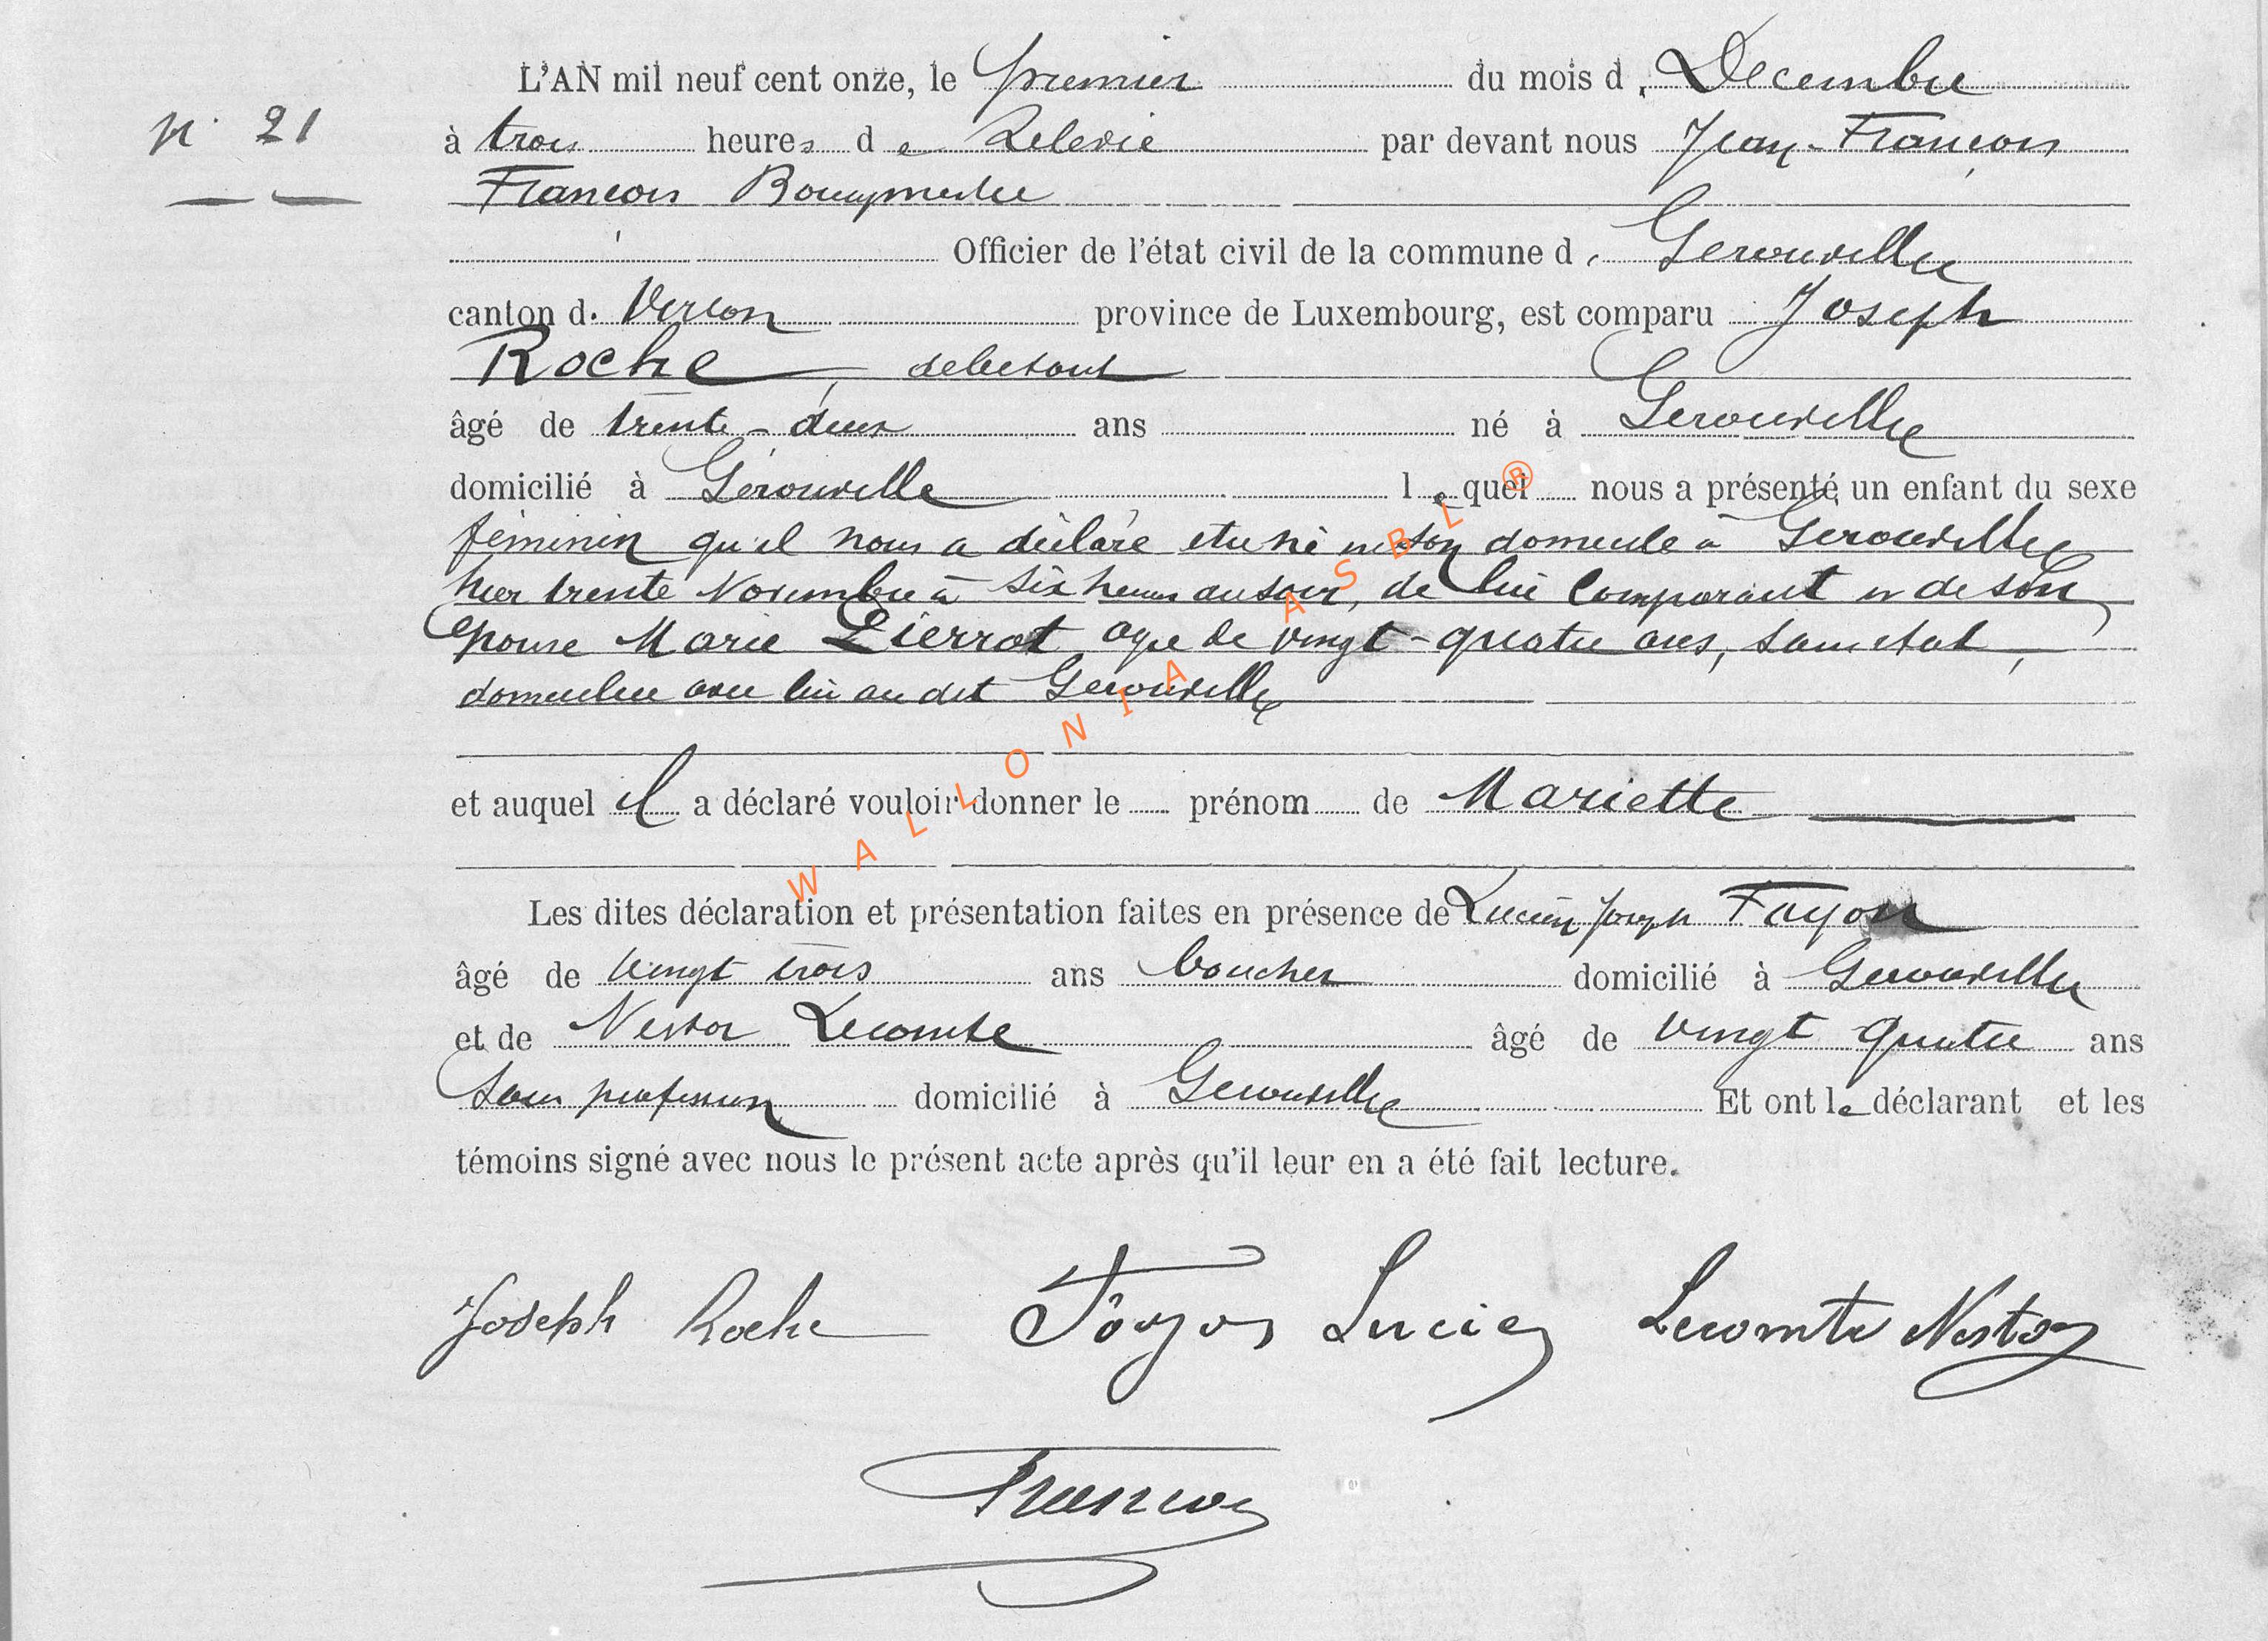 L'AN mil neuf cent onze, le premier du mois de Decembre
N° 21
à trois heures de Relevée par devant nous Jean-François
François Bourgmestre
Officier de l'état civil de la commune de Gerouville
canton de Virton province de Luxembourg, est comparu Joseph
Roche, debitant
âgé de trente-deux ans né à Gerouville
domicilié à Gérouville lequel nous a présenté un enfant du sexe
féminin qu'il nous a déclaré etre né en son domicile à Gérouville
hier trente Novembre à six heures du soir, de lui Comparant et de son
épouse Marie Pierrot agée de vingt-quatre ans, sans état,
domiciliée avec lui au dit Gerouville
et auquel il a déclaré vouloir donner le prénom de Mariette
Les dites déclaration et présentation faites en présence de Lucien Joseph Foyon
âgé de vingt trois ans boucher domicilié à Gerouville
et de Nestor Lecomte âgé de vingt quatre ans
sans profession domicilié à Gerouville Et ont le déclarant et les
témoins signé avec nous le présent acte après qu'il leur en a été fait lecture.
Joseph Roche Foyon Lucien Lecomte Nestor
François
WALLONIA ASBL ®